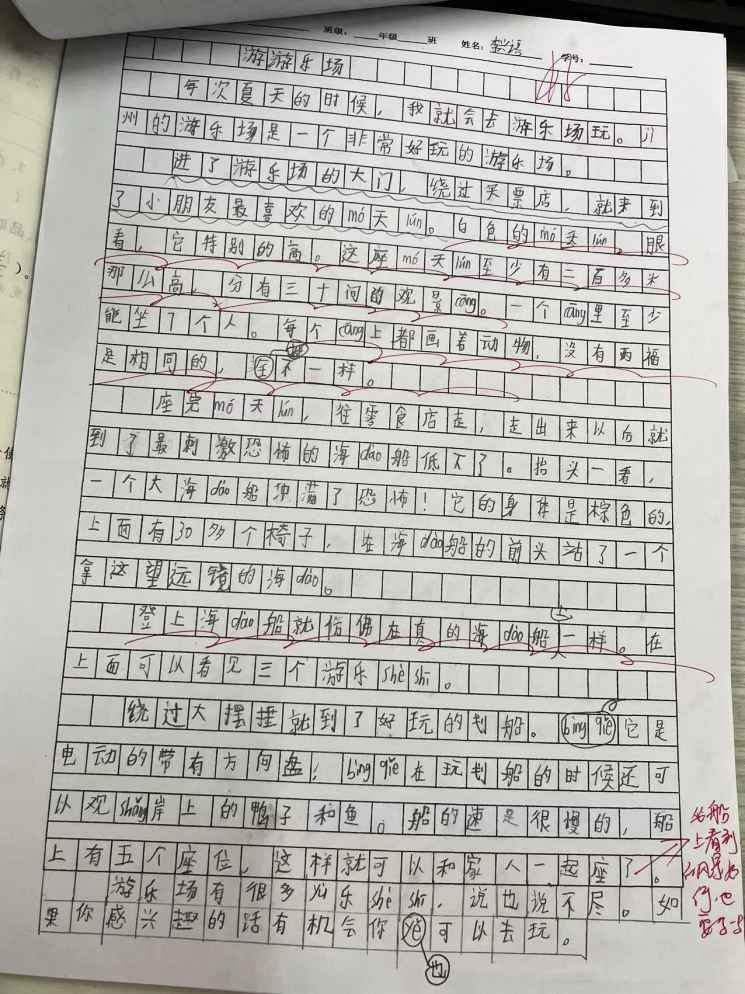 班级：　年级　班　姓名：　学号：
游游乐场
每次夏天的时候，我就会去游乐场玩。jī
州的游乐场是一个非常好玩的游乐场。
进了游乐场的大门，绕过买票店，就来到
了小朋友最喜欢的mó天lún。白色的mó天lún，眼
看，它特别的高。这座mó天lún至少有二百多米
那么高，分有三十间的观景cāng。一个cāng里至少
能坐了个人。每个cāng上都画着动物，没有两福
是相同的，全不一样。
座完mó天lún，往零食店走，走出来以后就
到了最刺激恐怖的海dào船低下了。抬头一看，
一个大海dào船充满了恐怖！它的身体是棕色的，
上面有30多个椅子，在海dào船的前头站了一个
拿这望远镜的海dào。
登上海dào船就仿佛在真的海dào船上一样。在
上面可以看见三个游乐shè shī。
绕过大摆捶就到了好玩的划船。bìng qiě它是
电动的带有方向盘，bìng qiě在玩划船的时候还可
以观shǎng岸上的鸭子和鱼。船的速是很慢的，船
上有五个座位，这样就可以和家人一起座了。
游乐场有很多yú乐shè shī，说也说不尽。如
果你感兴趣的话有机会你yě可以去玩。
也